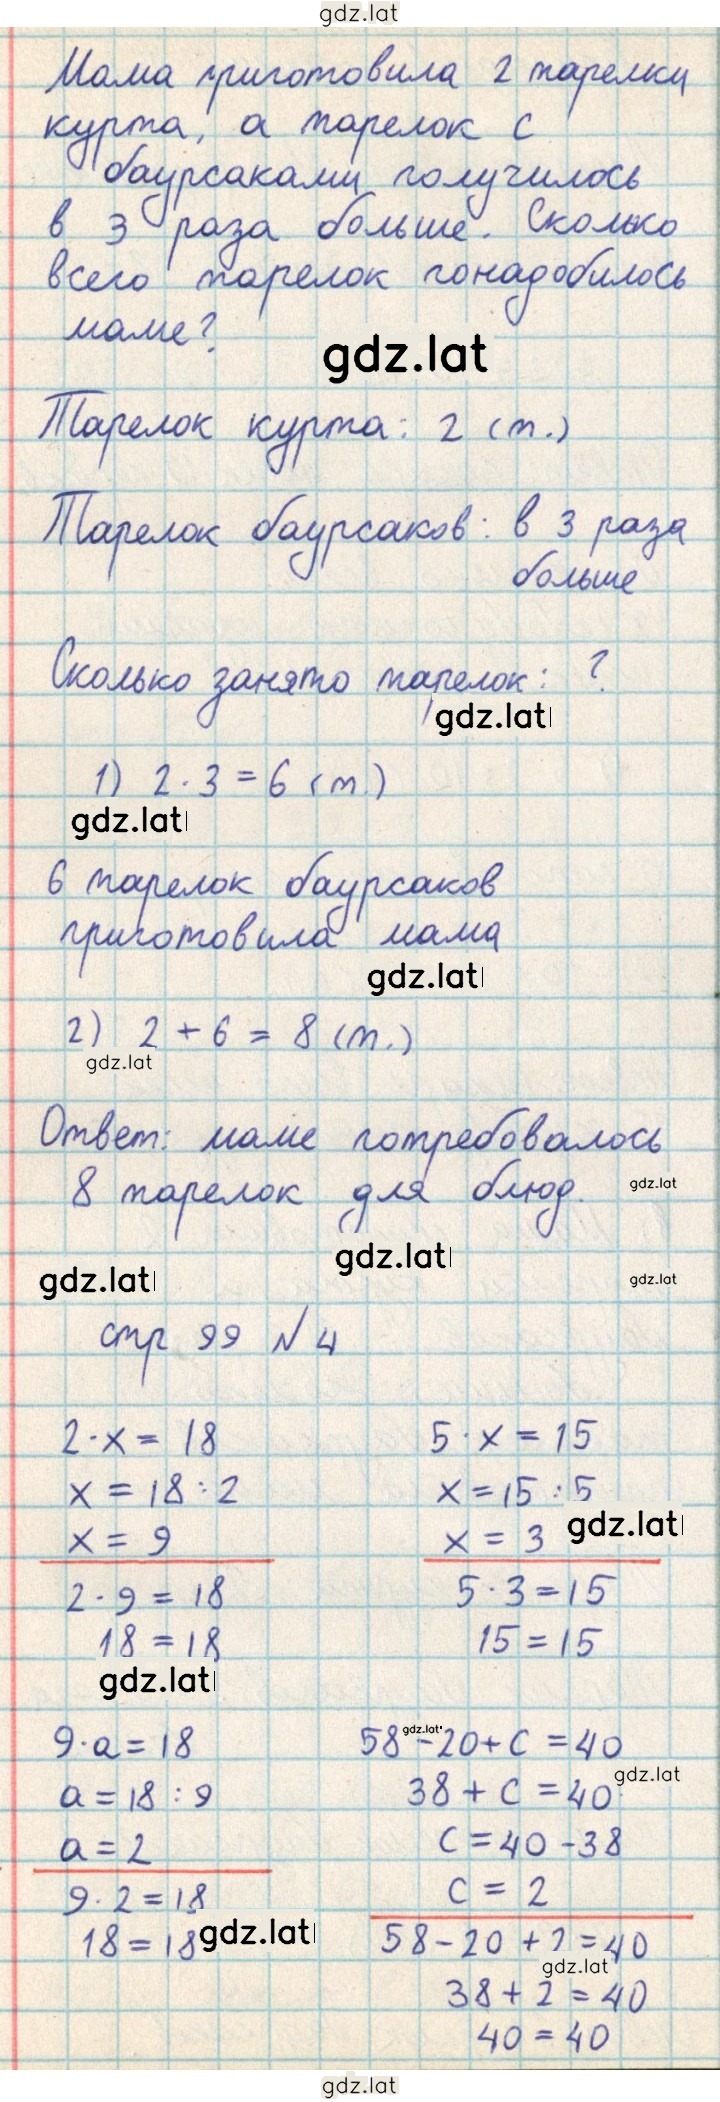 gdz.lat
Мама приготовила 2 тарелки
курта, а тарелок с
баурсаками получилось
в 3 раза больше. Сколько
всего тарелок понадобилось
маме?
gdz.lat
Тарелок курта: 2 (т.)
Тарелок баурсаков: в 3 раза
больше
Сколько занято тарелок: ?
gdz.lat
1) 2 · 3 = 6 (т.)
gdz.lat
6 тарелок баурсаков
приготовила мама
gdz.lat
2) 2 + 6 = 8 (т.)
gdz.lat
Ответ: маме потребовалось
8 тарелок для блюд.
gdz.lat
gdz.lat
gdz.lat
gdz.lat
стр 99 №4
2 · x = 18
x = 18 : 2
x = 9
2 · 9 = 18
18 = 18
gdz.lat
5 · x = 15
x = 15 : 5
x = 3
gdz.lat
5 · 3 = 15
15 = 15
9 · a = 18
a = 18 : 9
a = 2
9 · 2 = 18
18 = 18
gdz.lat
58 - 20 + c = 40
gdz.lat
gdz.lat
38 + c = 40
c = 40 - 38
c = 2
58 - 20 + 2 = 40
gdz.lat
38 + 2 = 40
40 = 40
gdz.lat